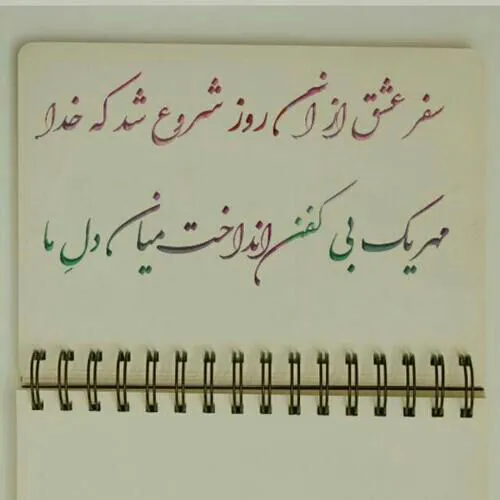 سفر عشق از آن روز شروع شد که خدا
مهر یک بی کفن انداخت میان دلِ ما